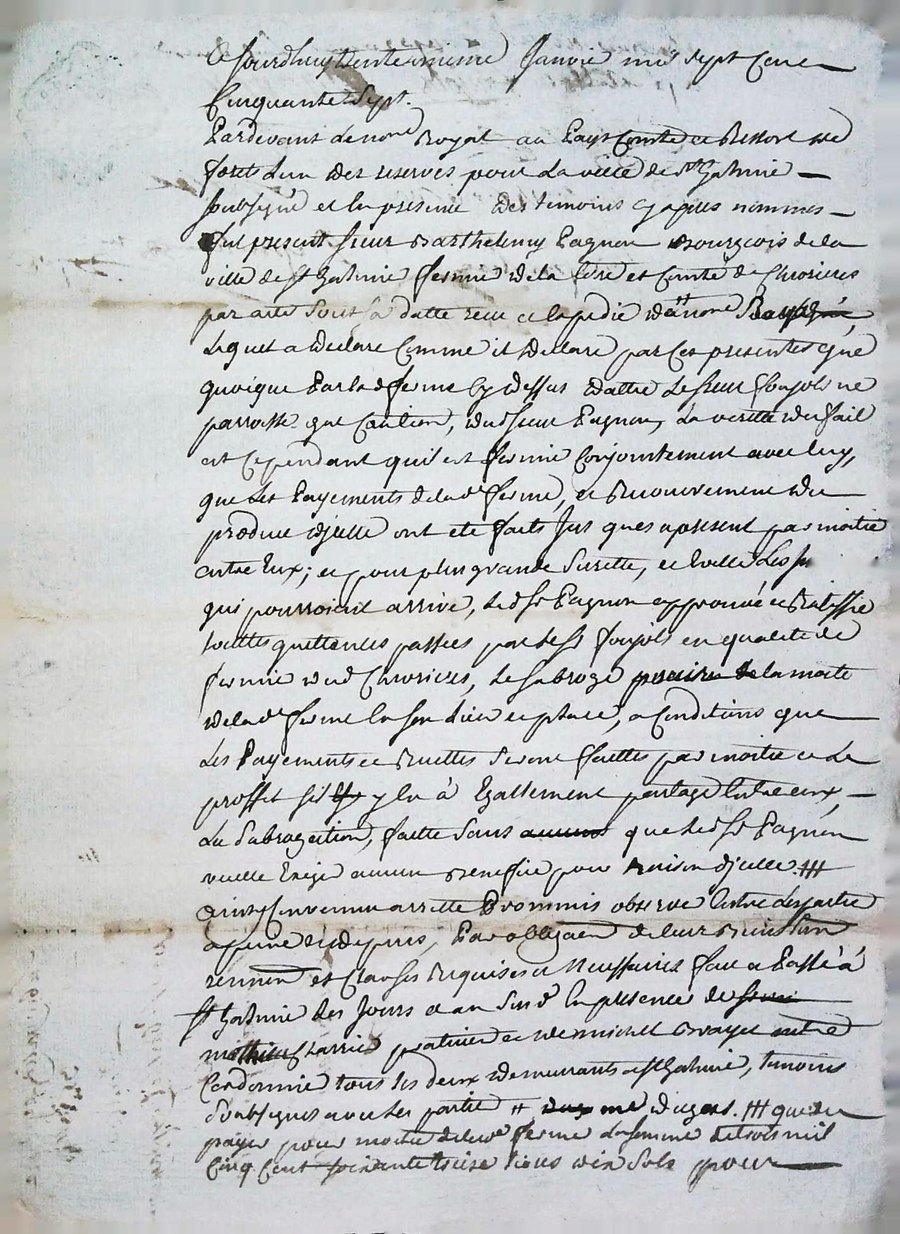 Ce Jourdhuy trente uniesme Janvie mil Sept Cent
Cinquante Sept.
Pardevant Le no.re Royal au Pays Comté et Ressort de
forets Lun des reserves pour La ville de St Galmie
soubsigné et En presence des temoins cy apres nommes
fut present sieur Barthelemy Pagnon Bourgeois de la
ville de St Galmie fermie de la terre et Comté de
par acte Sous sa datte receu et Expedié no.re
Lequel a declaré Comme il declare par Ces presentes que
quoique Par lad ferme cy dessus dattée Le sieur ne
paroisse que Caution, dud sieur Pagnon, La verité du fait
est Cependant quil est fermie Conjointement avec luy,
que Les Payements de lad ferme, et Recouvrement du
produit dicelle ont eté faits Jus ques apresent par moitie
entre Eux; et pour plus grande Surette, et
qui pourroient arrive, Led Sr Pagnon approuve et Ratiffie
touttes quittances passées par Le Sr en qualité de
fermie dud Le Subroge de la moitie
de lad ferme En Son Lieu et place, a Conditions que
Les Payements et Recettes Seront faittes par moitie et Le
proffit Sil y En à Egallement partagé Entre eux,
La Subrogation, faitte Sans que Led Sr Pagnon
veuille Exige aucun Benefice pour raison dicelle. ///
Ainsy Convenu arretté Prommis observe Entre Les parties
a peine de depens, Par obligaon de leurs Biens
renoncon et Clauses Requises et Necessaires fait et Passé à
St Galmie Les Jours et an Susd En presence de
mathieu praticien et de michel
Cordonnie tous les deux demeurants a St Galmie, temoins
Soubsignes avec Les parties // ///
paye pour moitie de lad ferme La somme de trois mil
Cinq Cent soixante treise Livres dix Sols pour